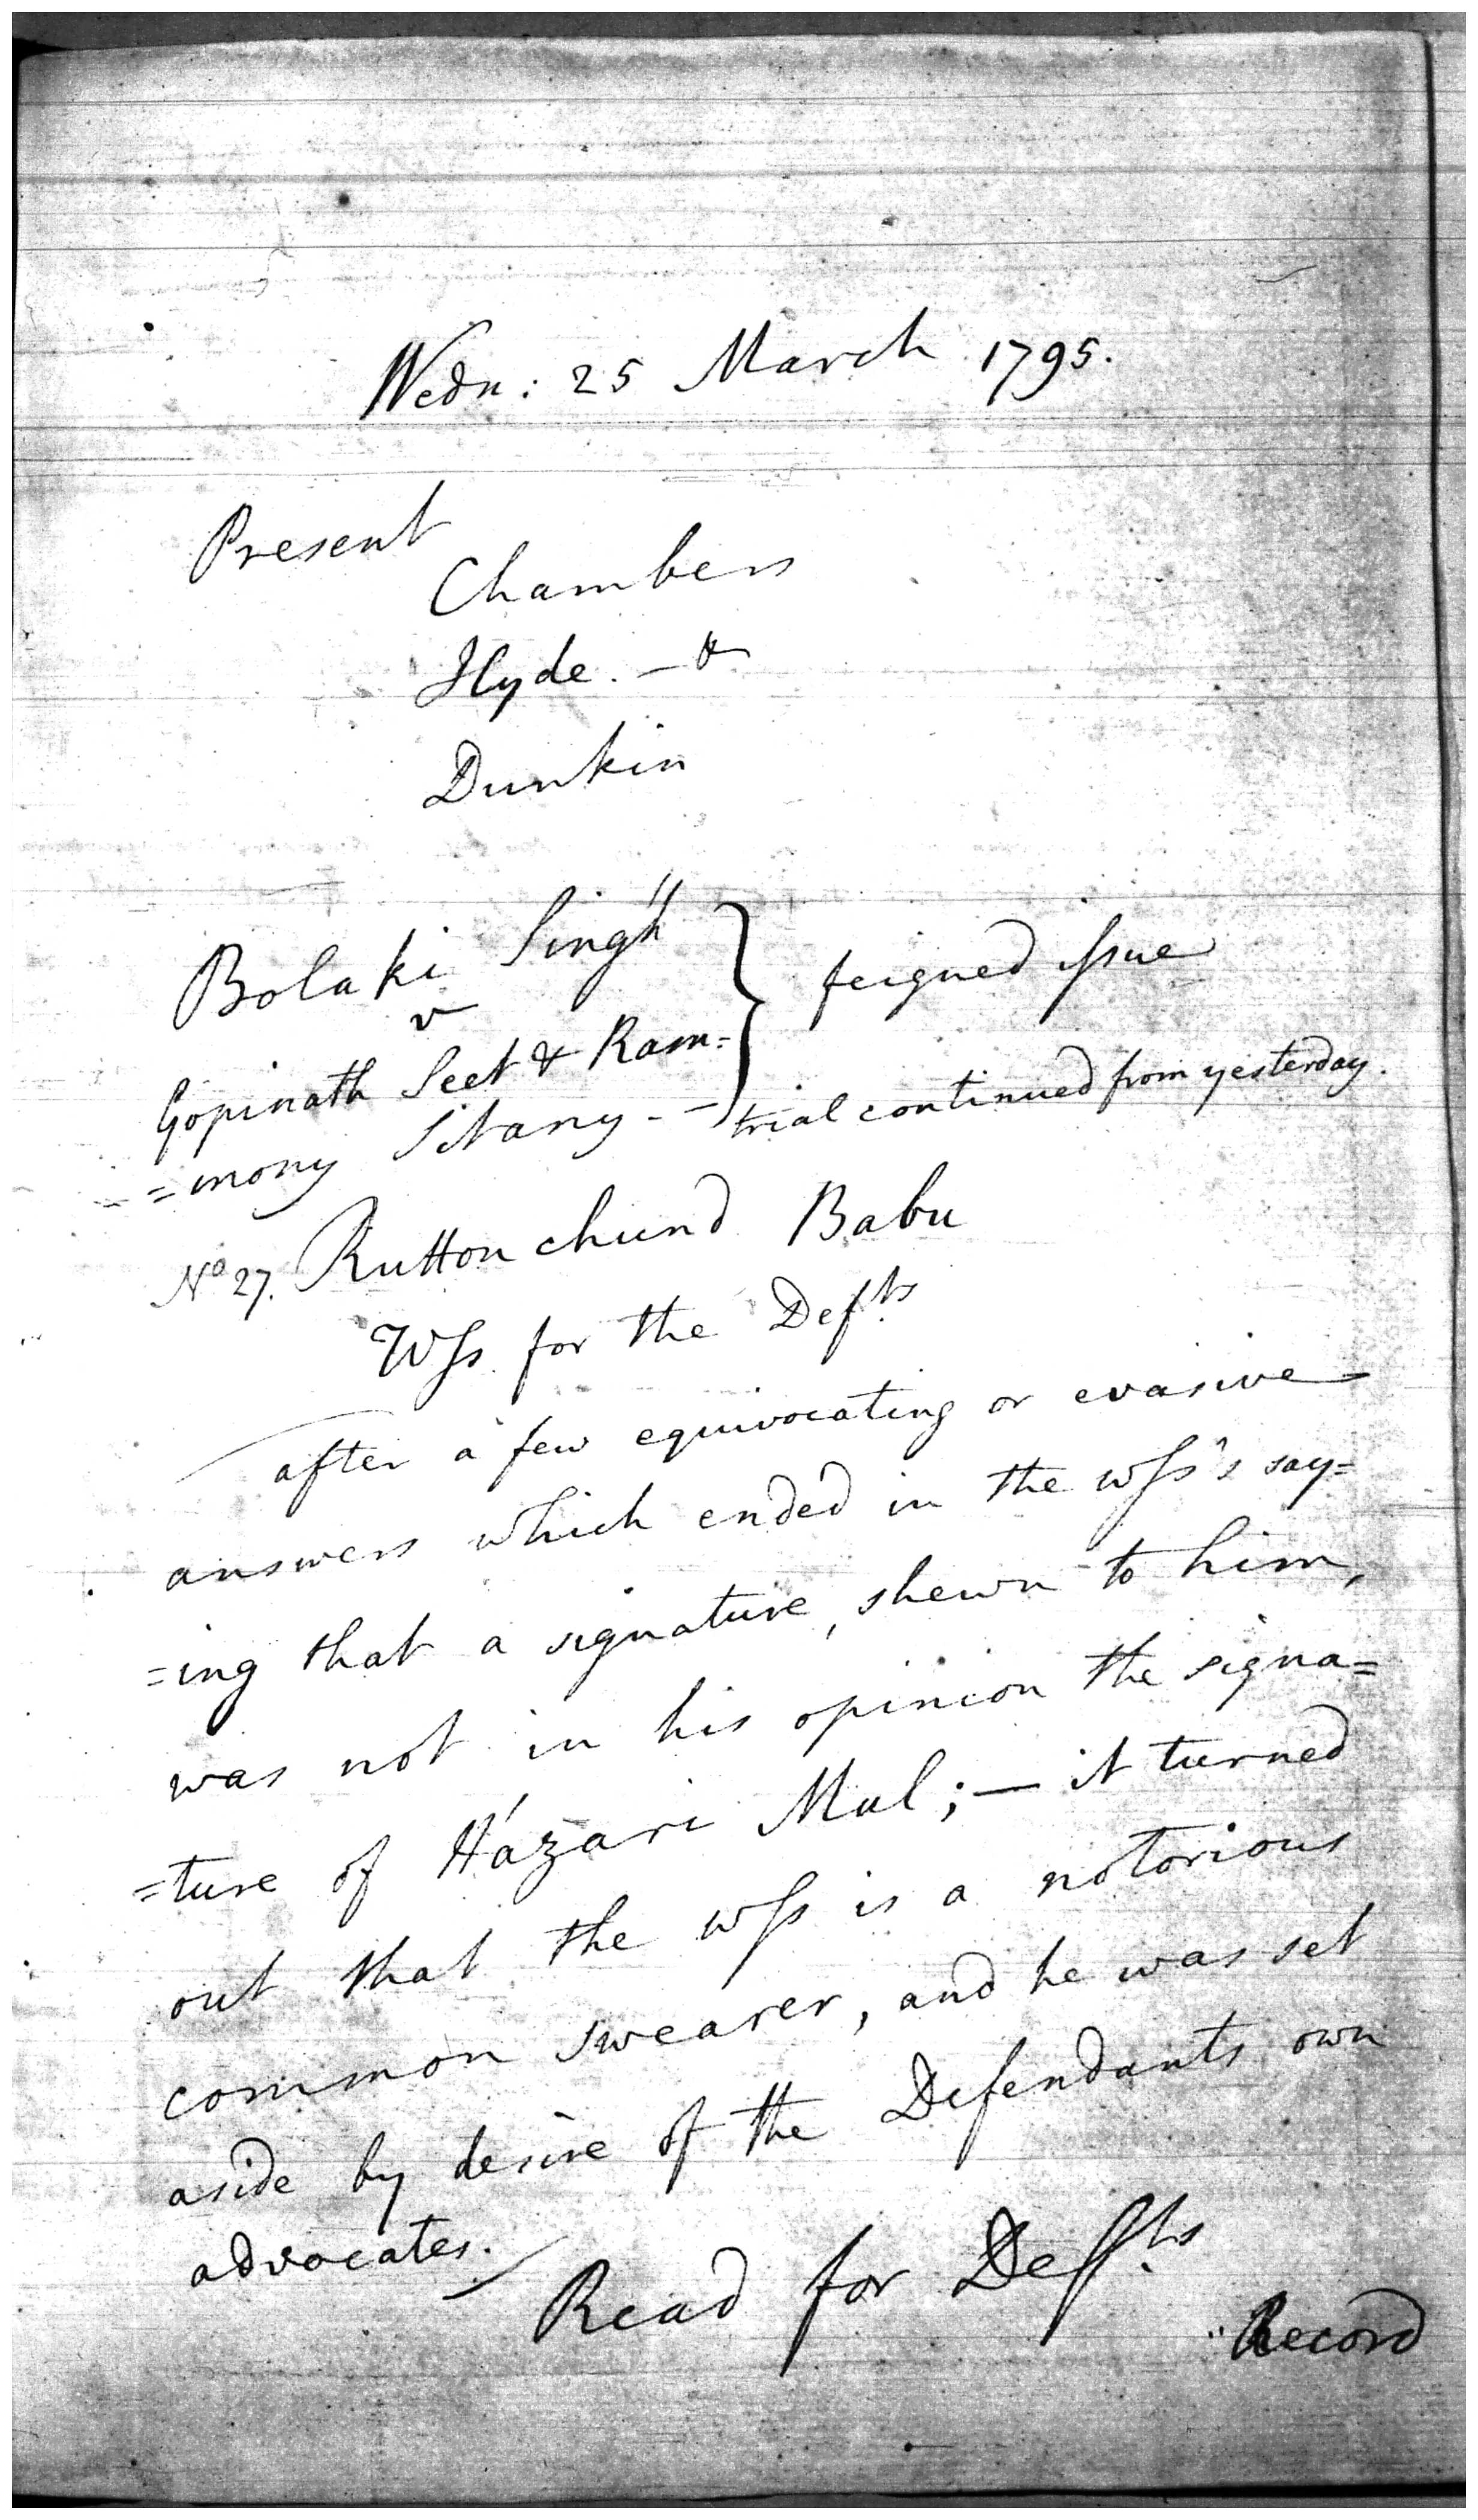 Wedn: 25 March 1795.
Present
Chambers
Hyde. - &
Dunkin
Bolaki Singh } feigned issue
v
Gopinath Seet & Ram=
=mony Sitany - - trial continued from yesterday.
No 27. Rutton chund Babu
Wss. for the Defts
after a few equivocating or evasive
answers which ended in the wss's say=
=ing that a signature, shewn to him,
was not in his opinion the signa=
=ture of Házari Mal; — it turned
out that the wss is a notorious
common swearer, and he was set
aside by desire of the Defendants own
advocates.
Read for Defts.
Record